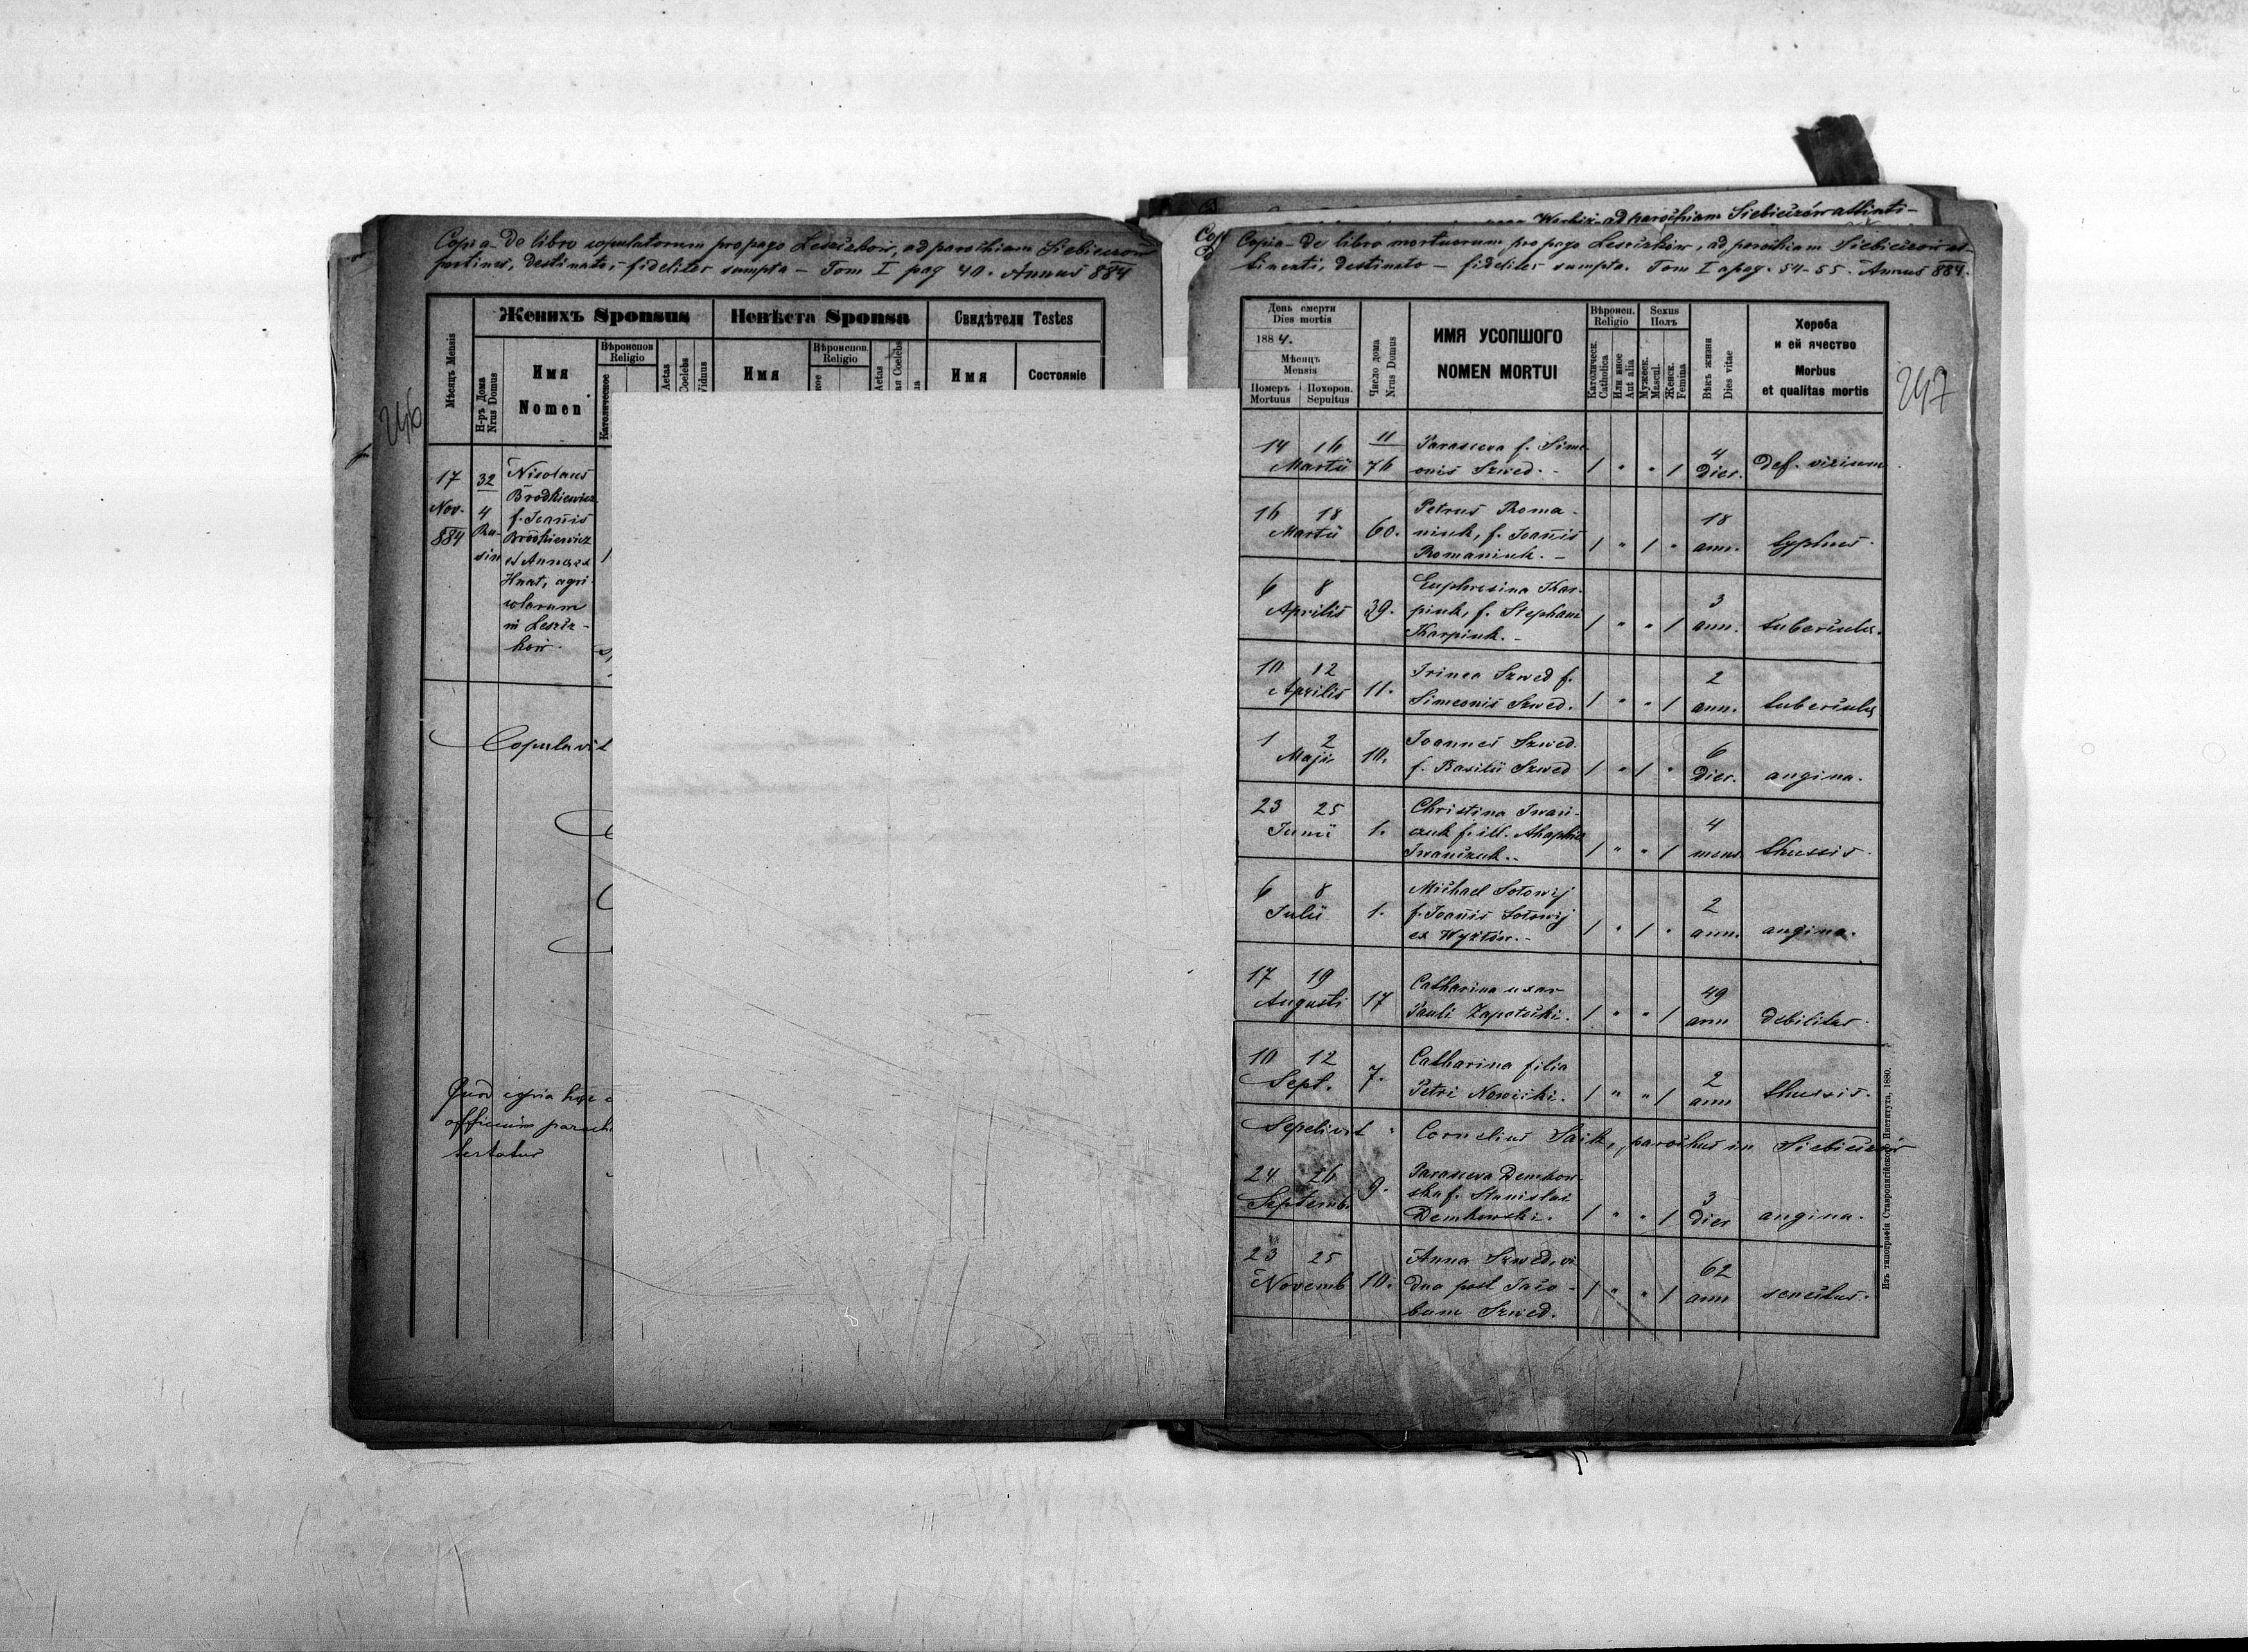 Copia de libro copulatorum pro pago Leszczków, ad parochiam Siebieczów
pertinet, destinato, fideliter sumpta – Tom I pag 40. Annus 884
246
Мѣсяцъ Mensis
Женихъ Sponsus
Н-ръ Дома
Nrus Domus
Имя
Nomen
Вѣроиспов
Religio
Католическое
Aetas
Coelebs
Viduus
Невѣста Sponsa
Имя
Вѣроиспов.
Religio
Aetas
Coelebs
Свидѣтели Testes
Имя
Состоянiе
17
Nov.
884
32
4
Ru-
sin
Nicolaus
Brodkiewicz
f. Joannis
Brodkiewicz
et Annae
Hnat, agri
colarum
in Leszcz-
ków.
Copulavit
Quod copia haec
officium paroch
testatur
ad parochiam Siebieczów attinti-
Copia de libro mortuorum pro pago Leszczków, ad parochiam Siebieczów at-
tinenti, destinato – fideliter sumpta. Tom I pag. 54-55. Annus 884.
247
День смерти
Dies mortis
1884.
Мѣсяцъ
Mensis
Померъ
Mortuus
Похорон.
Sepultus
Число дома
Nrus Domus
ИМЯ УСОПШОГО
NOMEN MORTUI
Вѣроисп.
Religio
Католическ.
Catholica
Или иное
Aut alia
Sexus
Полъ
Мужеск.
Mascul.
Женск.
Femina
Вѣкъ жизни
Dies vitae
Хороба
и ей ячество
Morbus
et qualitas mortis
14 16 Martii 11 76 Parasceva f. Sime
onis Szwed. - 1 " " 1 4 Dier. Def. virium
16 18 Martii 60. Petrus Roma-
niuk, f. Joannis
Romaniuk. - 1 " 1 " 18 ann. typhus.
6 8 Aprilis 39. Euphrosina Kar-
piuk, f. Stephani
Karpiuk. - 1 " " 1 3 ann. tuberculus.
10 12 Aprilis 11. Irinea Szwed f.
Simeonis Szwed. 1 " " 1 2 ann. tuberculus
1 2 Maji 10. Joannes Szwed
f. Basilii Szwed 1 " 1 " 6 Dier. angina.
23 25 Junii 1. Christina Iwań-
czuk f. ill. Ahaphia
Iwańczuk.. 1 " " 1 4 mens thussis.
6 8 Julii 1. Michael Sołowij
f. Joannis Sołowij
ex Wyżłów. - 1 " 1 " 2 ann. angina.
17 19 Augusti 17 Catharina uxor
Pauli Zapotočki. 1 " " 1 49 ann debilitas.
10 12 Sept. 7. Catharina filia
Petri Nowicki. 1 " " 1 2 ann thussis.
Sepelivit: Cornelius Saik, parochus in Siebieczów
24 26 Septemb. 9. Parasceva Demkow-
ska f. Stanislai
Demkowski. 1 " " 1 3 dier angina.
23 25 Novemb 10. Anna Szwed, vi
dua post Jaco-
bum Szwed. 1 " " 1 62 ann senectus.
Изъ типографiи Ставропигiйского Института, 1880.